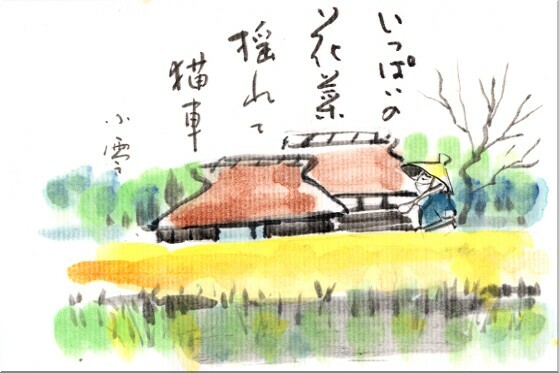 いっぱいの
花菜
揺れて
猫車
小雪